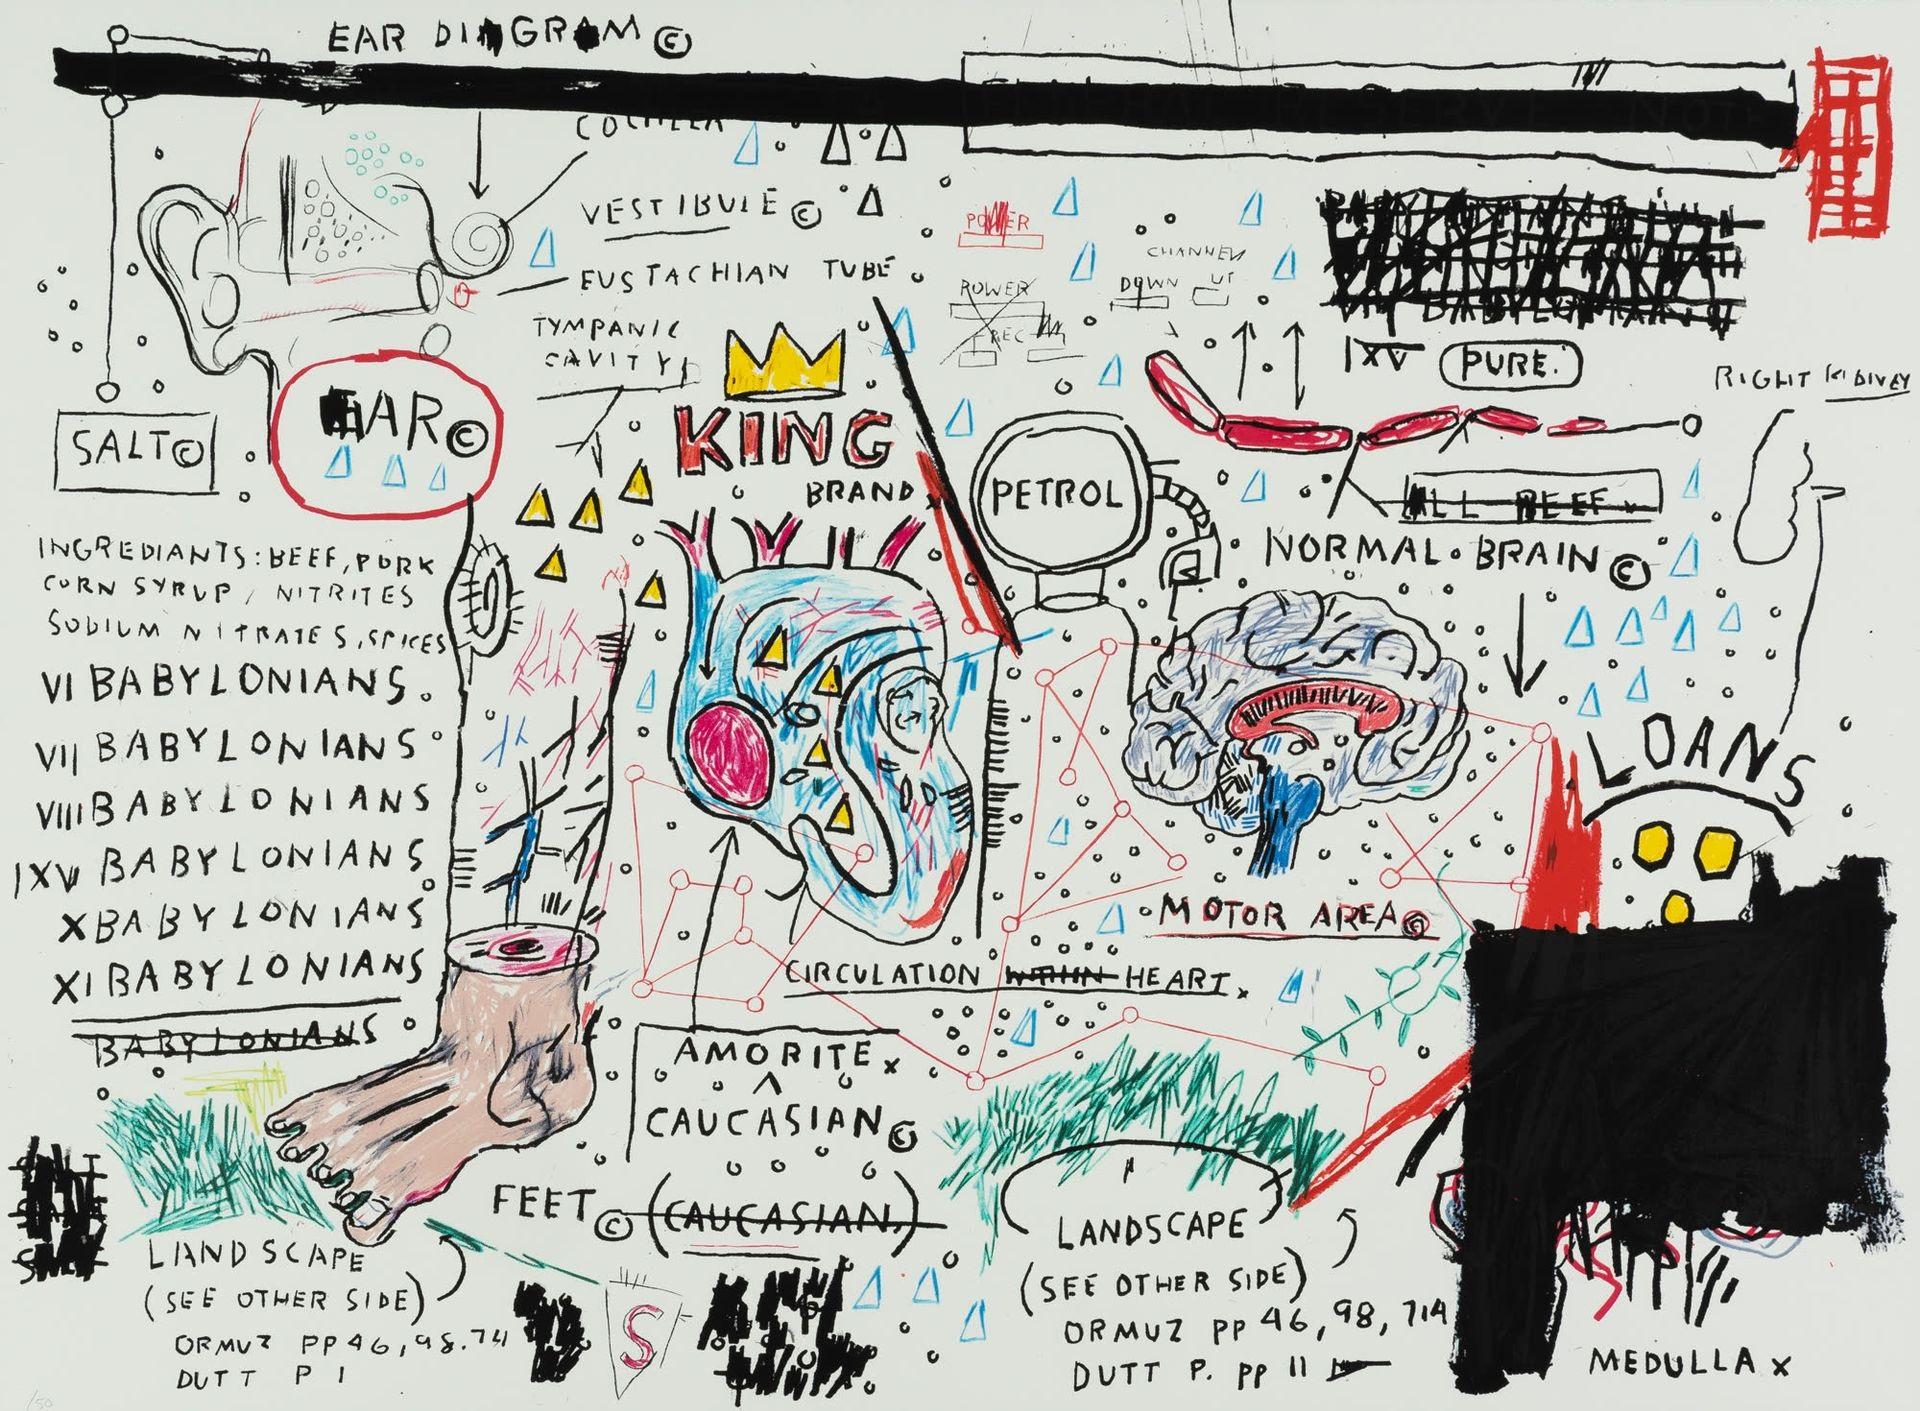 EAR DIAGRAM ©
COCHLEA
VESTIBULE ©
EUSTACHIAN TUBE
TYMPANIC
CAVITY
SALT ©
EAR ©
KING
BRAND
POWER
POWER
REC
CHANNEL
DOWN UP
PETROL
IXV PURE.
ALL BEEF
RIGHT KIDNEY
NORMAL BRAIN ©
INGREDIANTS: BEEF, PORK
CORN SYRUP, NITRITES
SODIUM NITRATES, SPICES
VI BABYLONIANS.
VII BABYLONIANS
VIII BABYLONIANS
IXV BABYLONIANS
X BABYLONIANS
XI BABYLONIANS
BABYLONIANS
LOANS
MOTOR AREA ©
CIRCULATION WITHIN HEART x
AMORITE x
CAUCASIAN ©
FEET © (CAUCASIAN.)
LANDSCAPE
(SEE OTHER SIDE)
ORMUZ PP 46, 98. 74
DUTT P 1
S
LANDSCAPE
(SEE OTHER SIDE)
ORMUZ PP 46, 98, 714
DUTT P. PP 11
MEDULLA x
/50